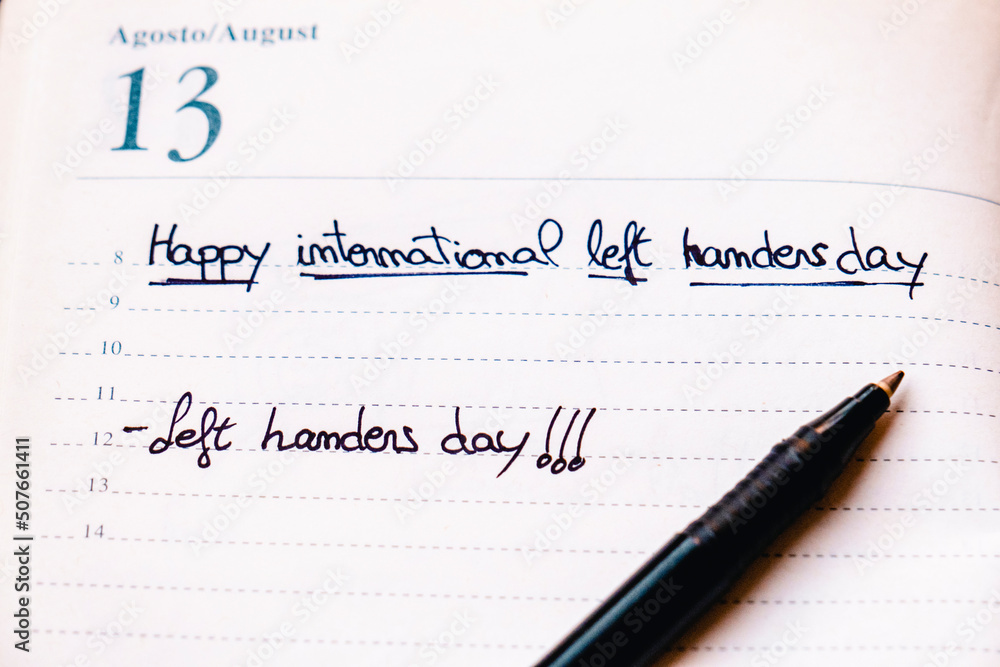 Agosto/August
13
8 Happy international left handers day
9
10
11
12 -Left handers day!!!
13
14
Adobe Stock | #507661411